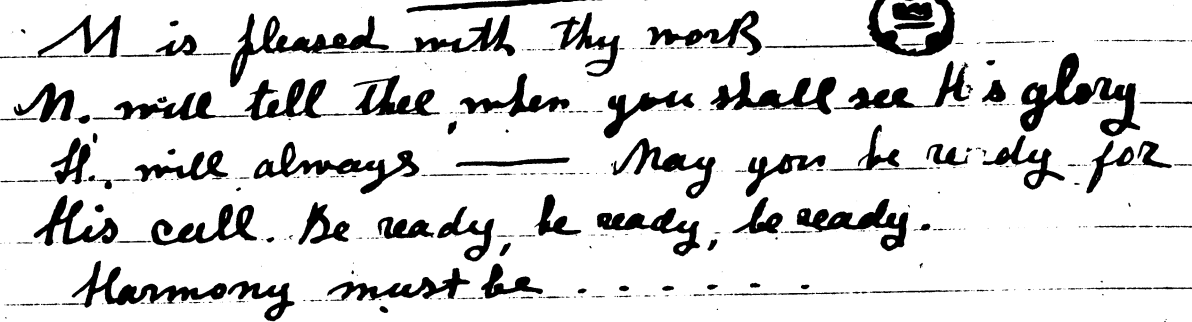 M is pleased with thy work
M. will tell thee, when you shall see His glory
H., will always —— May you be ready for
His call. Be ready, be ready, be ready.
Harmony must be . . . . . .